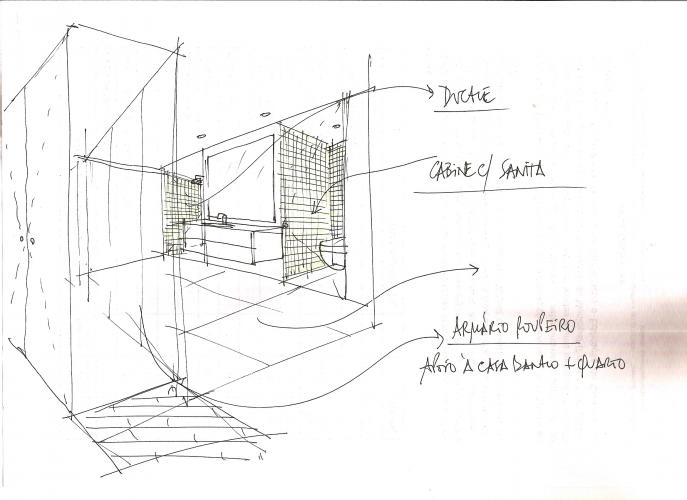 DUCHE
CABINE C/ SANITA
ARMÁRIO ROUPEIRO
APOIO À CASA BANHO + QUARTO